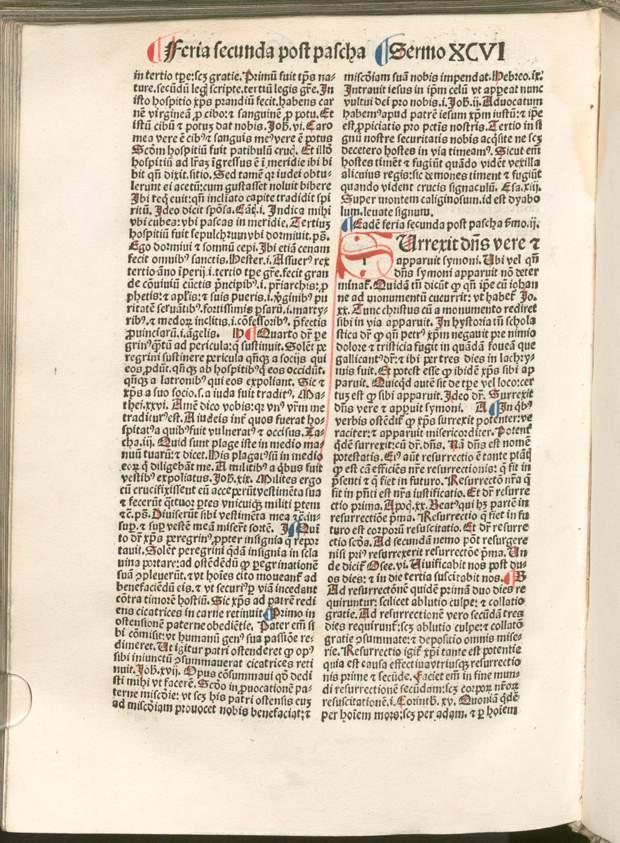 Feria secunda post pascha Sermo XCVI
in tertio tpe: scz gratie. Primū fuit tps na-
ture. secūdū legꝭ scripte. tertiū legis gr̄e. In
isto hospitio xp̄s prandiū fecit. habens car
nē virgineā ꝓ cibo: ⁊ sanguinē ꝓ potu. Et
istū cibū ⁊ potuȝ dat nobis. Joh̄. vi. Caro
mea vere ē cibꝰ ⁊ sanguis meꝰ vere ē potus
Scd̄m hospitiū fuit patibulū crucꝭ. Et illd̄
hospitiū ad lr̄am īgressus ē ī meridie ibi bi
bit qn̄ dixit. sitio. Sed tamē qr iudei obtu-
lerunt ei acetū: cum gustasset noluit bibere
Ibi teqͥ euit: qn̄ inclīato capite tradidit spi
ritū. Ideo dicit spōsa. Cāt̄. i. Indica mihi
vbi cubes: vbi pascas in meridie. Tertius
hospitiū fuit sepulchrum vbi dormiuit. ps̄.
Ego dormiui ⁊ somnū cepi. Ibi etiā cenam
fecit omnibꝰ sanctis. Hester. i. Assuerꝰ rex
tertio āno īperij. i. tertio tpe gr̄e. fecit gran
de cōuiuiū cūctis pncipibꝰ. i. pr̄iarchis: ꝓ
phetis: ⁊ apl̄is: ⁊ suis pueris. i. vginibꝰ pu
ritatē seruātibꝰ. fortissimis psaꝝ. i. martyr
ribꝰ. ⁊ medoꝝ inclitis. i. cōfessoribꝰ. ⁊ pfectis
ꝓuinciaꝝ. i. āgelis. H Quarto dr̄ pe
grinꝰ qͥntū ad pericula: q̄ sustinuit. Solēt pe
regrini sustinere pericula qn̄qȝ a socijs qui
eos ꝓdūt. qn̄qȝ ab hospitibꝰ q̄ eos occidūt.
qn̄qȝ a latronibꝰ qui eos expoliant. Sic ⁊
xp̄s a suo socio. s. a iuda fuit traditꝰ. Ma-
thei. xxvi. Amē dico vobis: qꝛ vnꝰ vr̄m me
traditurꝰ est. A iudeis intͣ quos fuerat hos
pitatꝰ a quibꝰ fuit vulneratꝰ ⁊ occisus. Za-
cha. iij. Quid sunt plage iste in medio ma-
nuū tuarū: ⁊ dicet. His plagatꝰ sū in medio
eoꝝ q̄ diligebāt me. A militibꝰ a qͥbus fuit
vestibꝰ expoliatus. Joh̄. xix. Milites ergo
cū crucifixissent eū acceperūt vestimēta sua
⁊ fecerūt qͣttuor ptes vnicuiqȝ militi ptem
⁊ c̄. ps̄. Diuiserūt sibi vestimēta mea ⁊ c̄. in-
suꝑ. ⁊ suꝑ vestē meā miserūt sortē. I Quī
to dr̄ xp̄s peregrinꝰ. ꝓpter insignia q̄ repor
tauit. Solēt peregrini qͦdā insignia in scla
uina portare: ad ostēdēdū ꝙ pegrinationē
suā ꝯpleuerūt. ⁊ vt hoīes cito moueant̄ ad
benefaciēdū eis. ⁊ vt securiꝰ ꝑ viā incedant
cōtra timorē hostiū. Sic xp̄s ad patrē redi
ens cicatrices in carne retinuit. Primo in
ostensionē paterne obedītie. Pater em̄ si
bi cōmisit: vt humanū genꝰ sua passiōe re-
dimeret. Ut igitur patri ostenderet ꝙ opꝰ
sibi iniunctū ꝯsummauerat cicatrices reti
nuit. Joh̄. xvij. Opus cōsummaui qd̄ dedi
sti mihi vt facerē. Scd̄o in ꝓuocationē pa-
terne mīscdie: vt scz his patri ostensis eum
ad mīscdiam prouocet nobis benefaciat: ⁊
mīscdiam suā nobis impendat. Hebreo. ix.
Intrauit iesus in ip̄m celū vt appeat nunc
vultui dei pro nobis. i. Joh̄. ij. Aduocatum
habemꝰ apud patrē iesum xp̄m iustū: ⁊ ip̄e
est ꝓpiciatio pro pctīs nostris. Tertio in si
gnū nostre securitatis nobis acqͥsite ne scz
decetero hostes in via timeamꝰ. Sicut em̄
hostes timēt ⁊ fugiūt quādo vidēt vexilla
alicuius regis: sic demones timent ⁊ fugiūt
quando vident crucis signaculū. Esa. xiij.
Super montem caliginosum. id est dyabo
lum. leuate signum.
Eadē feria secunda post pascha sm̄o. ij.
Surrexit dn̄s vere ⁊
apparuit symoni. Ubi vel qn̄
dn̄s symoni apparuit nō deter
minat̄. Quidā tn̄ dicūt ꝙ qn̄ ip̄e cū iohan
ne ad monumentū cucurrit: vt habet̄ Jo.
xx. Tunc christus cū a monumento rediret
sibi in via apparuit. In hystoria tn̄ schola
stica dr̄ ꝙ qn̄ petrꝰ xp̄m negauit pre nimio
dolore ⁊ tristicia fugit in quādā foueā que
gallicantꝰ dr̄: ⁊ ibi per tres dies in lachry-
nis fuit. Et potest esse ꝙ ibidē xp̄s sibi ap
paruit. Quicqͥd autē sit de tpe vel loco: cer
tus est ꝙ sibi apparuit. Ideo dr̄. Surrexit
dn̄s vere ⁊ appuit symoni. A In qͥbꝰ
verbis ostēdit̄ ꝙ xp̄s surrexit potenter: ve
raciter: ⁊ apparuit misericorditer. Potent̄
qͥdē surrexit: cū dr̄: dn̄s. Nā dn̄s est nomē
potestatis. Eiꝰ aūt resurrectio ē tante ptātꝭ
ꝙ est cā efficiēs nr̄e resurrectionis: q̄ fit in
p̄senti ⁊ q̄ fiet in futuro. Resurrectō nr̄a q̄
fit in p̄nti est nr̄a iustificatio. Et dr̄ resurre
ctio prima. Apoc̄. xx. Beatꝰ qui hȝ partē in
resurrectiōe p̄ma. Resurrectio q̄ fiet in futu
ro est corpoꝝ resuscitatio. Et dr̄ resurre
ctio scd̄a. Ad secundā nemo pōt resurgere
nisi priꝰ resurrexerit resurrectōe p̄ma. Un
de dicit̄ Osee. vi. Uiuificabit nos post du-
os dies: ⁊ in die tertia suscitabit nos. B
Ad resurrectionē quidē primā duo dies re
quiruntur: scilicet ablutio culpe: ⁊ collatio
gratie. Ad resurrectionē vero secūdā tres
dies requirunt̄: scz ablutio culpe: ⁊ collatō
gratie ꝯsummate: ⁊ depositio omnis mise-
rie. Resurrectio igit̄ xp̄i tante est potentie
quia est causa effectiua vtriusqȝ resurrectio
nis prime ⁊ secūde. Faciet em̄ in fine mun-
di resurrectionē secūdam: scz corpoꝝ nr̄oꝝ
resuscitationē. i. Corinth̄. xv. Quoniā qͥdē
per hoīem mors: scz per adam. ⁊ ꝑ hoīem